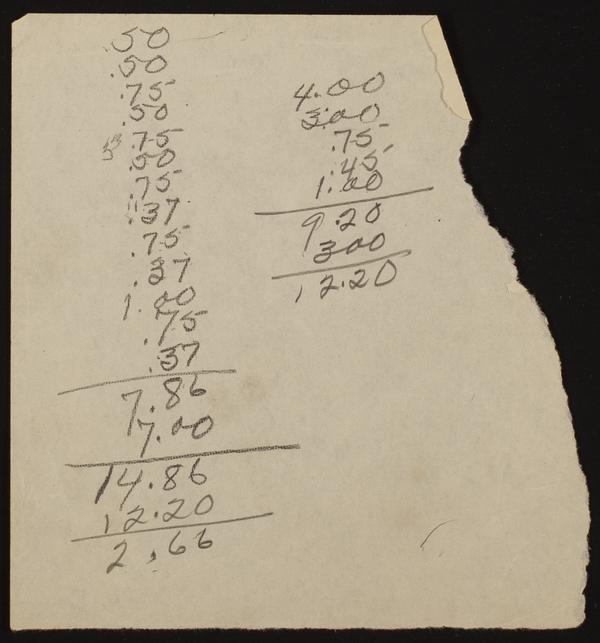 .50
.50
.75
.50
.75
.50
.75
.37
.75
.37
1.00
.75
.37
7.86
7.00
14.86
12.20
2.66
4.00
3.00
.75
.45
1.00
9.20
3.00
12.20